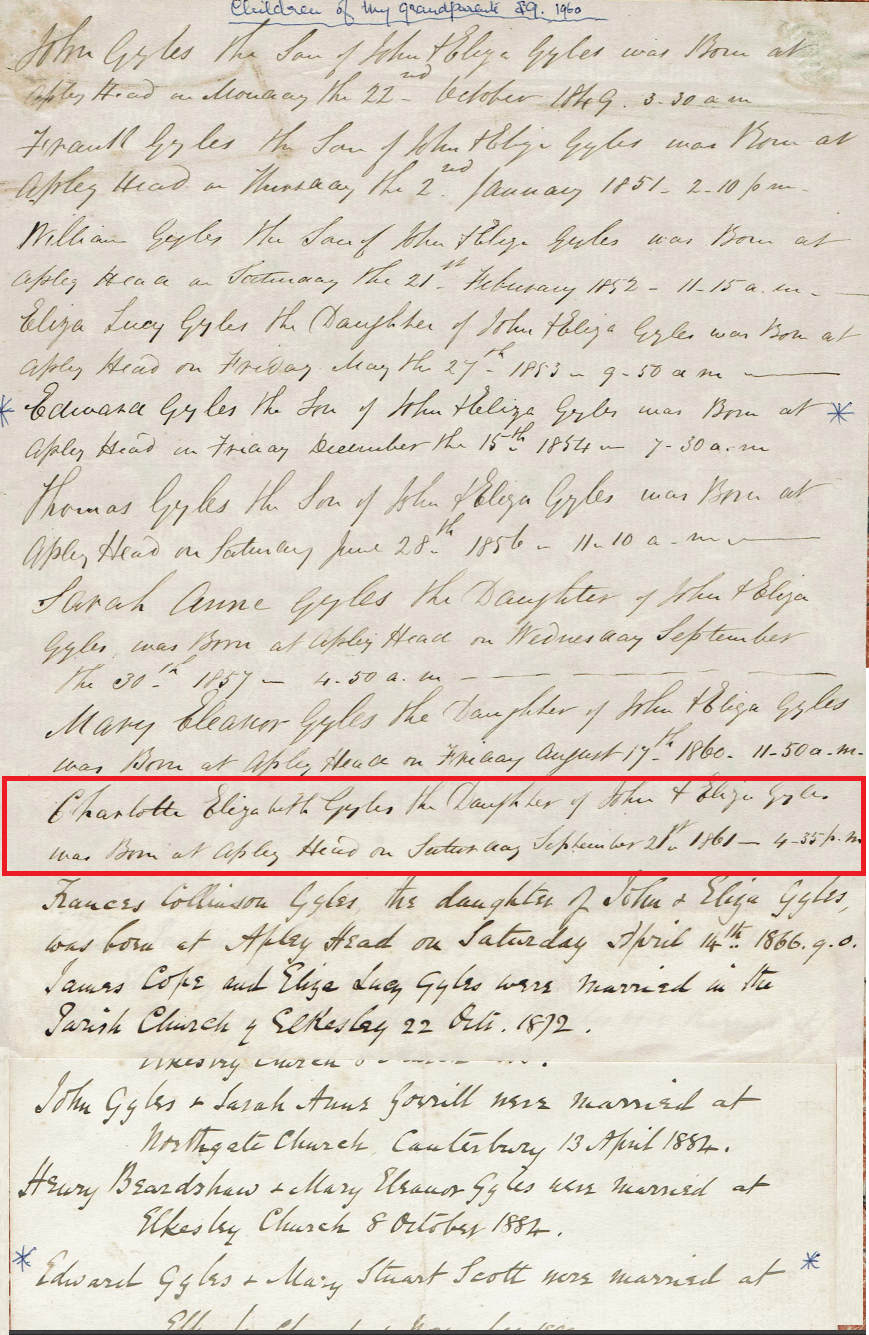 Children of my grandparents 1960
John Gyles the Son of John & Eliza Gyles was Born at
Apley Head on Monday the 22nd October 1849. 3-30 a m
Frank Gyles the Son of John & Eliza Gyles was Born at
Apley Head on Thursday the 2nd January 1851 - 2-10 pm -
William Gyles the Son of John & Eliza Gyles was Born at
Apley Head on Saturday the 21st February 1852 - 11-15 a. m. -
Eliza Lucy Gyles the Daughter of John & Eliza Gyles was Born at
Apley Head on Friday May the 27th - 1853 - 9-50 a m —
* Edward Gyles the Son of John & Eliza Gyles was Born at *
Apley Head on Friday December the 15th 1854 - 7-30 a.m
Thomas Gyles the Son of John & Eliza Gyles was Born at
Apley Head on Saturday June 28th 1856 - 11-10 a - m —
Sarah Anne Gyles the Daughter of John & Eliza
Gyles, was Born at Apley Head on Wednesday September
the 30th 1857 — 4-50 a. m - — — — —
Mary Eleanor Gyles the Daughter of John & Eliza Gyles
was Born at Apley Head on Friday August 17th 1860 - 11-50 a-m-
Charlotte Elizabeth Gyles the Daughter of John & Eliza Gyles
was Born at Apley Head on Saturday September 21st 1861 — 4-35 p.m
Frances Collinson Gyles, the daughter of John & Eliza Gyles,
was born at Apley Head on Saturday April 14th 1866. 9.0.
James Cope and Eliza Lucy Gyles were married in the
Parish Church of Elkesley 22 Oct. 1872.
John Gyles & Sarah Anne Gorrill were married at
Northgate Church Canterbury 13 April 1884.
Henry Beardshaw & Mary Eleanor Gyles were married at
Elkesley Church 8 October 1884.
* Edward Gyles & Mary Stuart Scott were married at *